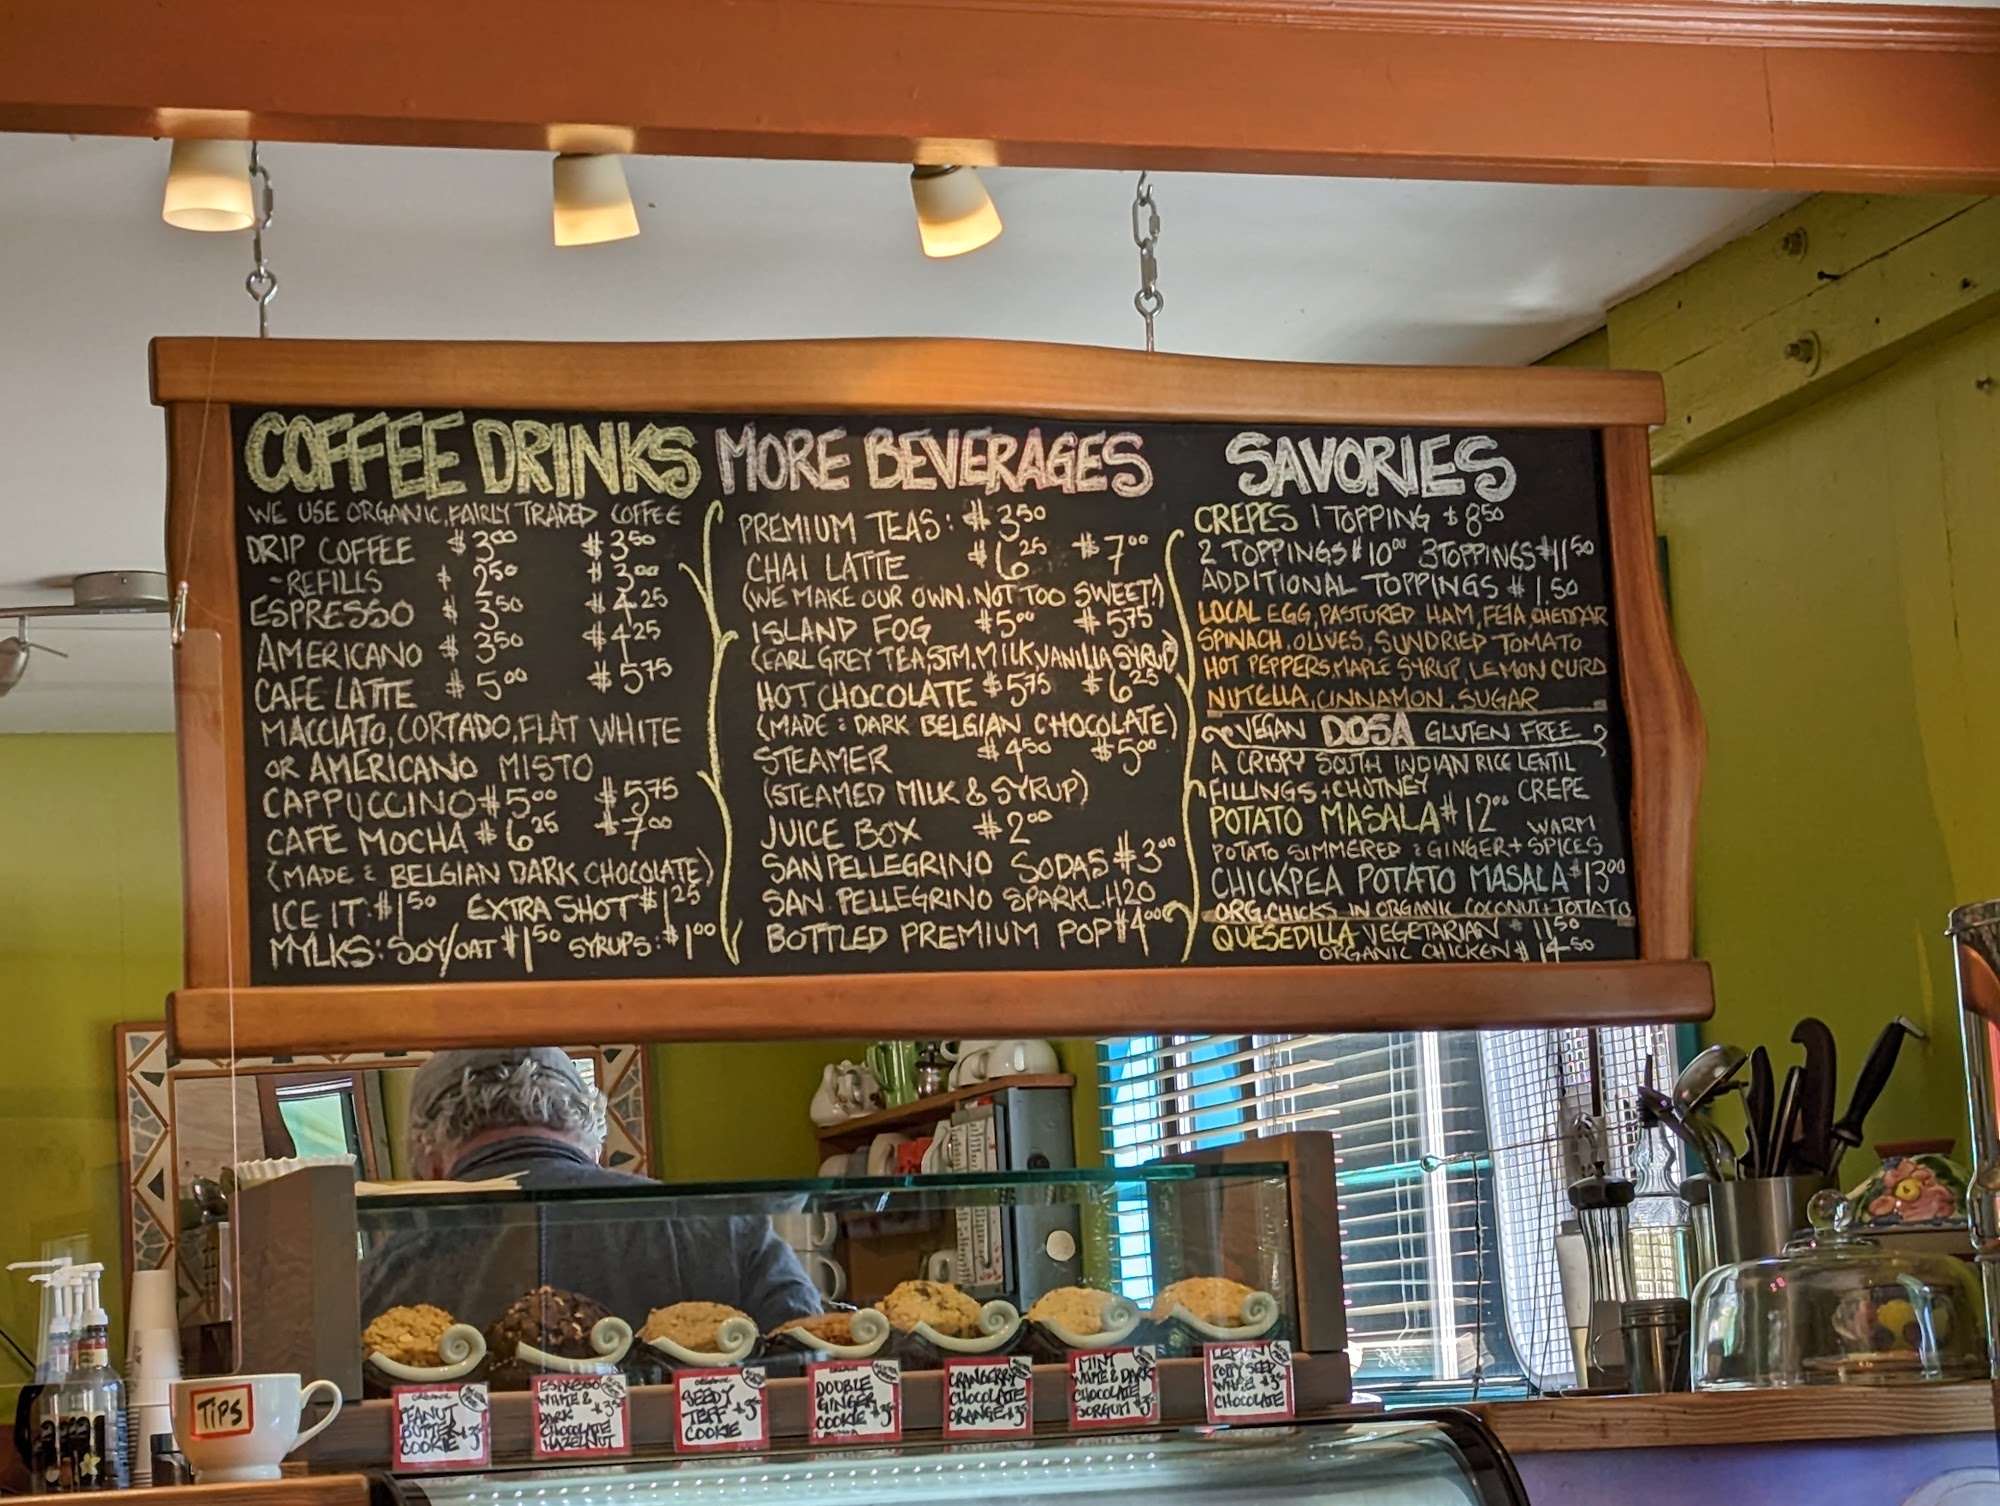 COFFEE DRINKS
WE USE ORGANIC, FAIRLY TRADED COFFEE
DRIP COFFEE $3.00 $3.50
~REFILLS $2.50 $3.00
ESPRESSO $3.50 $4.25
AMERICANO $3.50 $4.25
CAFE LATTE $5.00 $5.75
MACCIATO, CORTADO, FLAT WHITE
OR AMERICANO MISTO
CAPPUCCINO $5.00 $5.75
CAFE MOCHA $6.25 $7.00
(MADE : BELGIAN DARK CHOCOLATE)
ICE IT: $1.50 EXTRA SHOT $1.25
MYLKS: SOY/OAT $1.50 SYRUPS: $1.00
MORE BEVERAGES
PREMIUM TEAS: $3.50
CHAI LATTE $6.25 $7.00
(WE MAKE OUR OWN. NOT TOO SWEET!)
ISLAND FOG $5.00 $5.75
(EARL GREY TEA, STM. MILK, VANILLA SYRUP)
HOT CHOCOLATE $5.75 $6.25
(MADE : DARK BELGIAN CHOCOLATE)
STEAMER $4.50 $5.00
(STEAMED MILK & SYRUP)
JUICE BOX $2.00
SAN PELLEGRINO SODAS $3.00
SAN. PELLEGRINO SPARKL. H2O
BOTTLED PREMIUM POP $4.00
SAVORIES
CREPES 1 TOPPING $8.50
2 TOPPINGS $10.00 3 TOPPINGS $11.50
ADDITIONAL TOPPINGS $1.50
LOCAL EGG, PASTURED HAM, FETA, CHEDDAR
SPINACH, OLIVES, SUNDRIED TOMATO
HOT PEPPERS, MAPLE SYRUP, LEMON CURD
NUTELLA, CINNAMON, SUGAR
VEGAN DOSA GLUTEN FREE
A CRISPY SOUTH INDIAN RICE LENTIL
FILLINGS + CHUTNEY CREPE
POTATO MASALA $12.00 WARM
POTATO SIMMERED : GINGER + SPICES
CHICKPEA POTATO MASALA $13.00
ORG. CHICKS IN ORGANIC COCONUT + TOMATO
QUESEDILLA VEGETARIAN $11.50
ORGANIC CHICKEN $14.50
TIPS
ORGANIC
PEANUT
BUTTER
COOKIE
ESPRESSO
WHITE &
DARK
CHOCOLATE
HAZELNUT
ORGANIC
SEEDY
TEFF
COOKIE
DOUBLE
GINGER
COOKIE
CRANBERRY
CHOCOLATE
ORANGE
MINT
WHITE & DARK
CHOCOLATE
SORGUM
LEMON
POPPY SEED
WHITE
CHOCOLATE